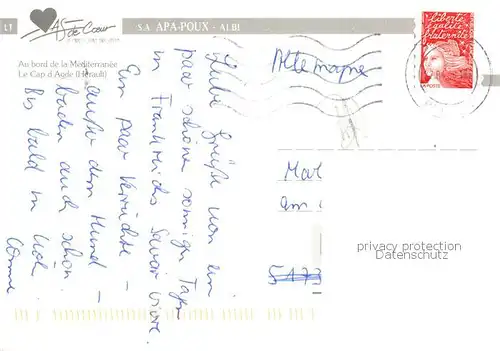 L1
As de Cœur
S.A APA-POUX - ALBI
Au bord de la Méditerranée
Le Cap d'Agde (Hérault)
Liebe Grüße von ein
paar schönen sonnigen Tagen
in Frankreichs Savoir vivre.
Ein paar Verrückte –
außer dem Hund –
baden auch schon.
Bis bald in
Allemagne
Liberté
égalité
fraternité
LA POSTE
privacy protection
Datenschutz